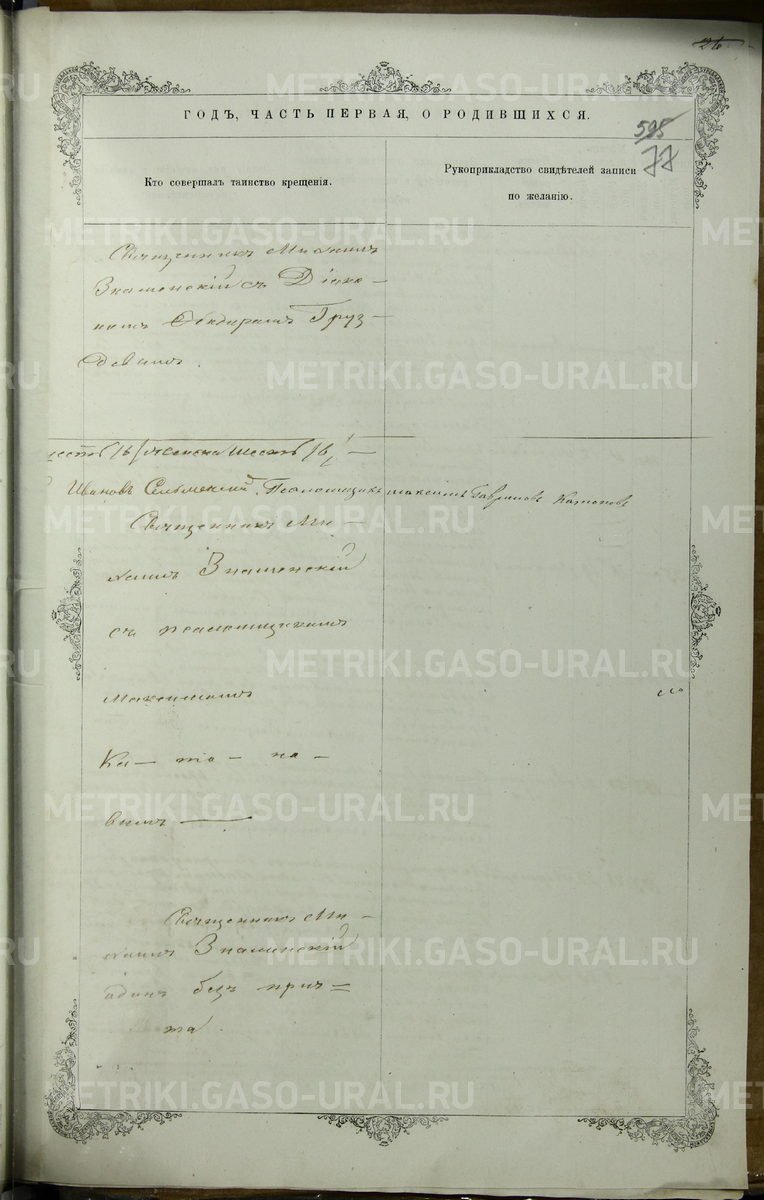 26
ГОДЪ, ЧАСТЬ ПЕРВАЯ, О РОДИВШИХСЯ.
595
77
Кто совершалъ таинство крещенія.
Рукоприкладство свидѣтелей записи
по желанію.
Священникъ Михаилъ
Знаменскій съ Діако-
номъ Груз-
девымъ.
шесть /6/ женска шесть /6/
Ивановъ Псаломщикъ Максимъ Гавриловъ Катановъ
Священникъ Ми-
хаилъ Знаменскій
съ псаломщикомъ
Максимомъ
Ка- та- но-
вымъ
Священникъ Ми-
хаилъ Знаменскій
одинъ безъ прич-
та.
METRIKI.GASO-URAL.RU